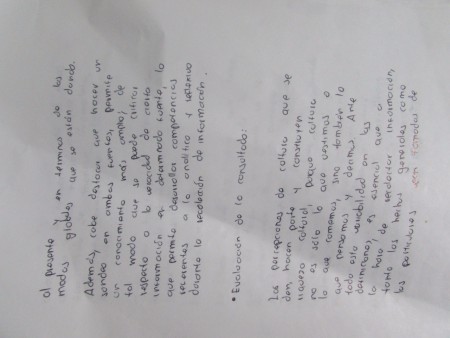 al presente y en termino de las
modas globales que se están dando.
Además, cabe destacar que hacer un
sondeo en ambas fuentes, permite
un conocimiento más amplio; de
tal modo que se puede critico
respecto a la veracidad de cierta
información en determinado fuente, lo
que permite desarrollar competencias
referentes a lo analítico y
durante la recolección de información.
• Evaluación de lo consultado:
Las percepciones de cultura que se
den hacen parte y constituyen
riqueza cultural, porque cultura
no es sólo lo que vestimos o
lo que comemos, sino también lo
que pensamos y decimos. Ante
toda esta variabilidad en las
definiciones, es esencial que a
la hora de recolectar información,
tanto los hechos generales como
los particulares sean tomados de